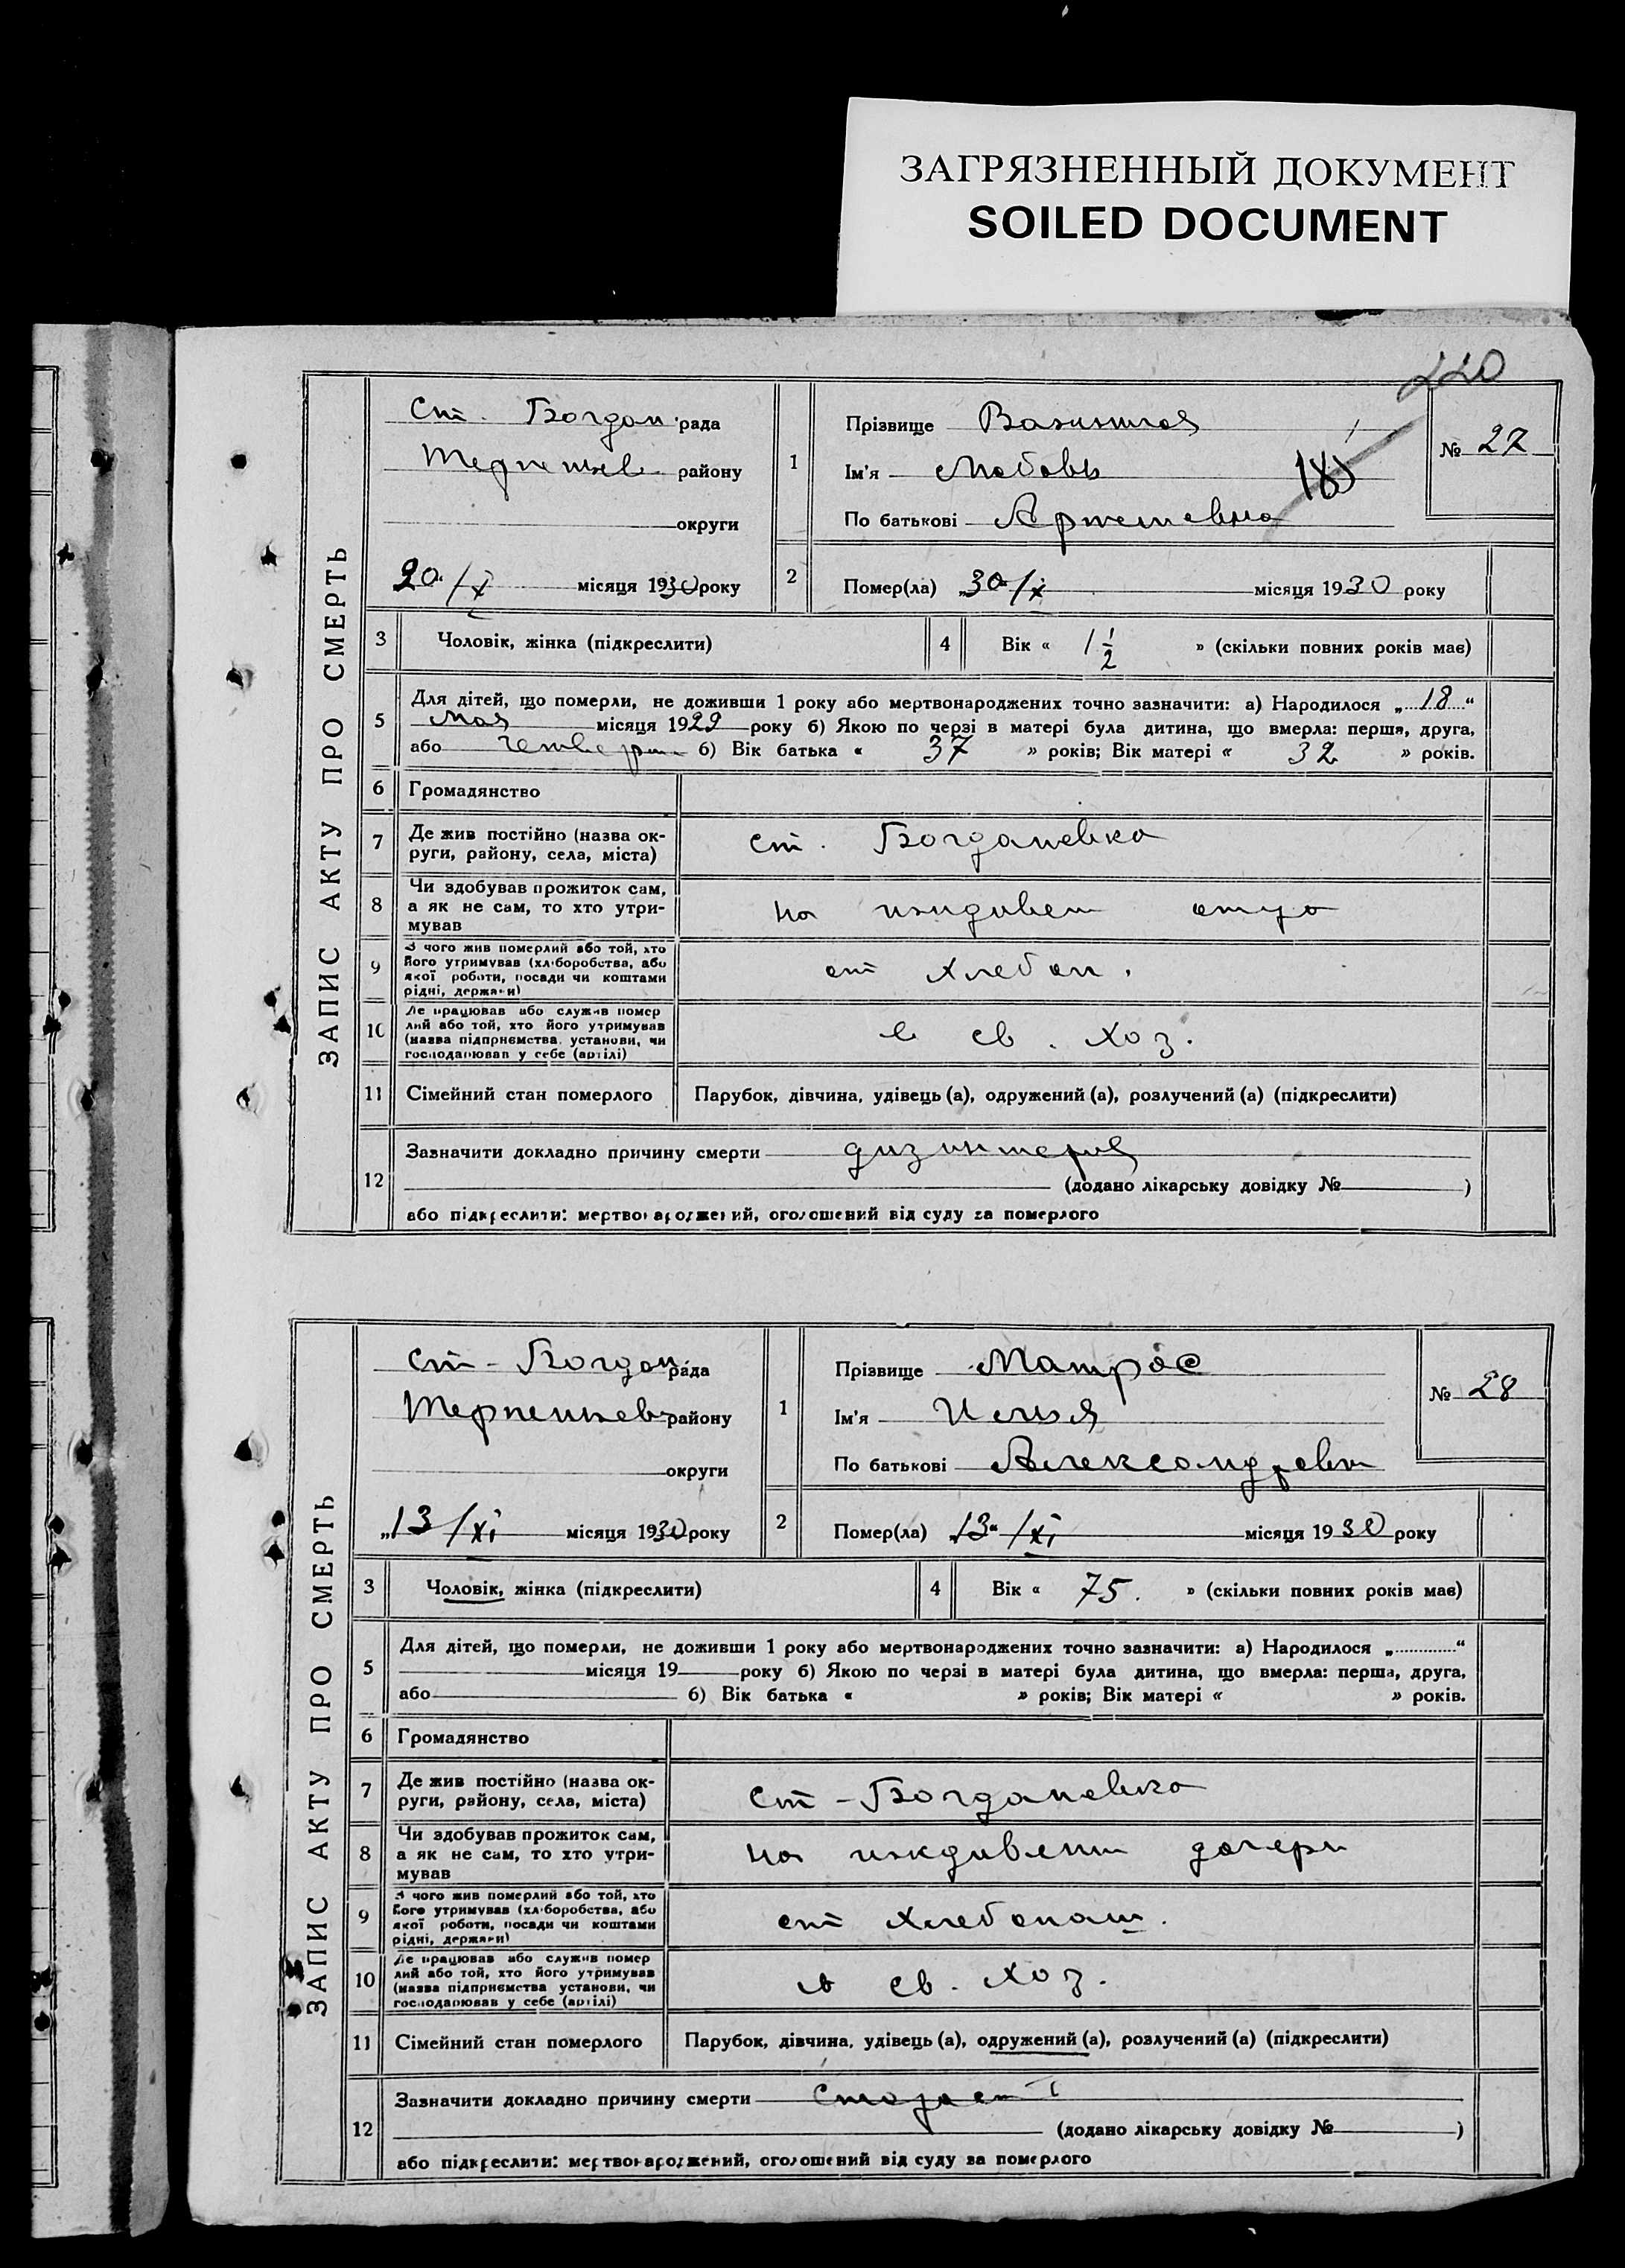 ЗАГРЯЗНЕННЫЙ ДОКУМЕНТ
SOILED DOCUMENT
220
ЗАПИС АКТУ ПРО СМЕРТЬ
Ст. Богдан. рада
району
округи
1
Прізвище
Ім'я Любовь
По батькові
183
№ 27
20/X місяця 1930 року
2
Помер(ла) „30"/X місяця 1930 року
3 Чоловік, жінка (підкреслити)
4 Вік « 1 1/2 » (скільки повних років має)
5 Для дітей, що померли, не доживши 1 року або мертвонароджених точно зазначити: а) Народилося „18"
мая місяця 1929 року б) Якою по черзі в матері була дитина, що вмерла: перша, друга,
або б) Вік батька « 37 » років; Вік матері « 32 » років.
6 Громадянство
7 Де жив постійно (назва округи, району, села, міста) ст. Богдановка
8 Чи здобував прожиток сам,
а як не сам, то хто утри-
мував
на иждивен отца
9 З чого жив померлий або той, хто
його утримував (хліборобства, або
якої роботи, посади чи коштами
рідні, держави)
от хлебоп.
10 Де працював або служив помер
лий або той, хто його утримував
(назва підприємства, установи, чи
господарював у себе (артілі)
в св. хоз.
11 Сімейний стан померлого Парубок, дівчина, удівець (а), одружений (а), розлучений (а) (підкреслити)
12 Зазначити докладно причину смерти дизинтерия
(додано лікарську довідку № )
або підкреслити: мертвонароджений, оголошений від суду за померлого
ЗАПИС АКТУ ПРО СМЕРТЬ
Ст - Богдан. рада
Терпеньев району
округи
1
Прізвище Матрос
Ім'я Илья
По батькові Александрович
№ 28
„13/XI місяця 1930 року
2
Помер(ла) „13"/XI місяця 1930 року
3 Чоловік, жінка (підкреслити)
4 Вік « 75. » (скільки повних років має)
5 Для дітей, що померли, не доживши 1 року або мертвонароджених точно зазначити: а) Народилося „ "
місяця 19 року б) Якою по черзі в матері була дитина, що вмерла: перша, друга,
або б) Вік батька « » років; Вік матері « » років.
6 Громадянство
7 Де жив постійно (назва ок-
руги, району, села, міста)
ст - Богдановка
8 Чи здобував прожиток сам,
а як не сам, то хто утри-
мував
на иждивени дочери
9 З чого жив померлий або той, хто
його утримував (хліборобства, або
якої роботи, посади чи коштами
рідні, держави)
от хлебопаш.
10 Де працював або служив помер
лий або той, хто його утримував
(назва підприємства установи, чи
господарював у себе (артілі)
в св. хоз.
11 Сімейний стан померлого Парубок, дівчина, удівець (а), одружений (а), розлучений (а) (підкреслити)
12 Зазначити докладно причину смерти
(додано лікарську довідку № )
або підкреслити: мертвонароджений, оголошений від суду за померлого